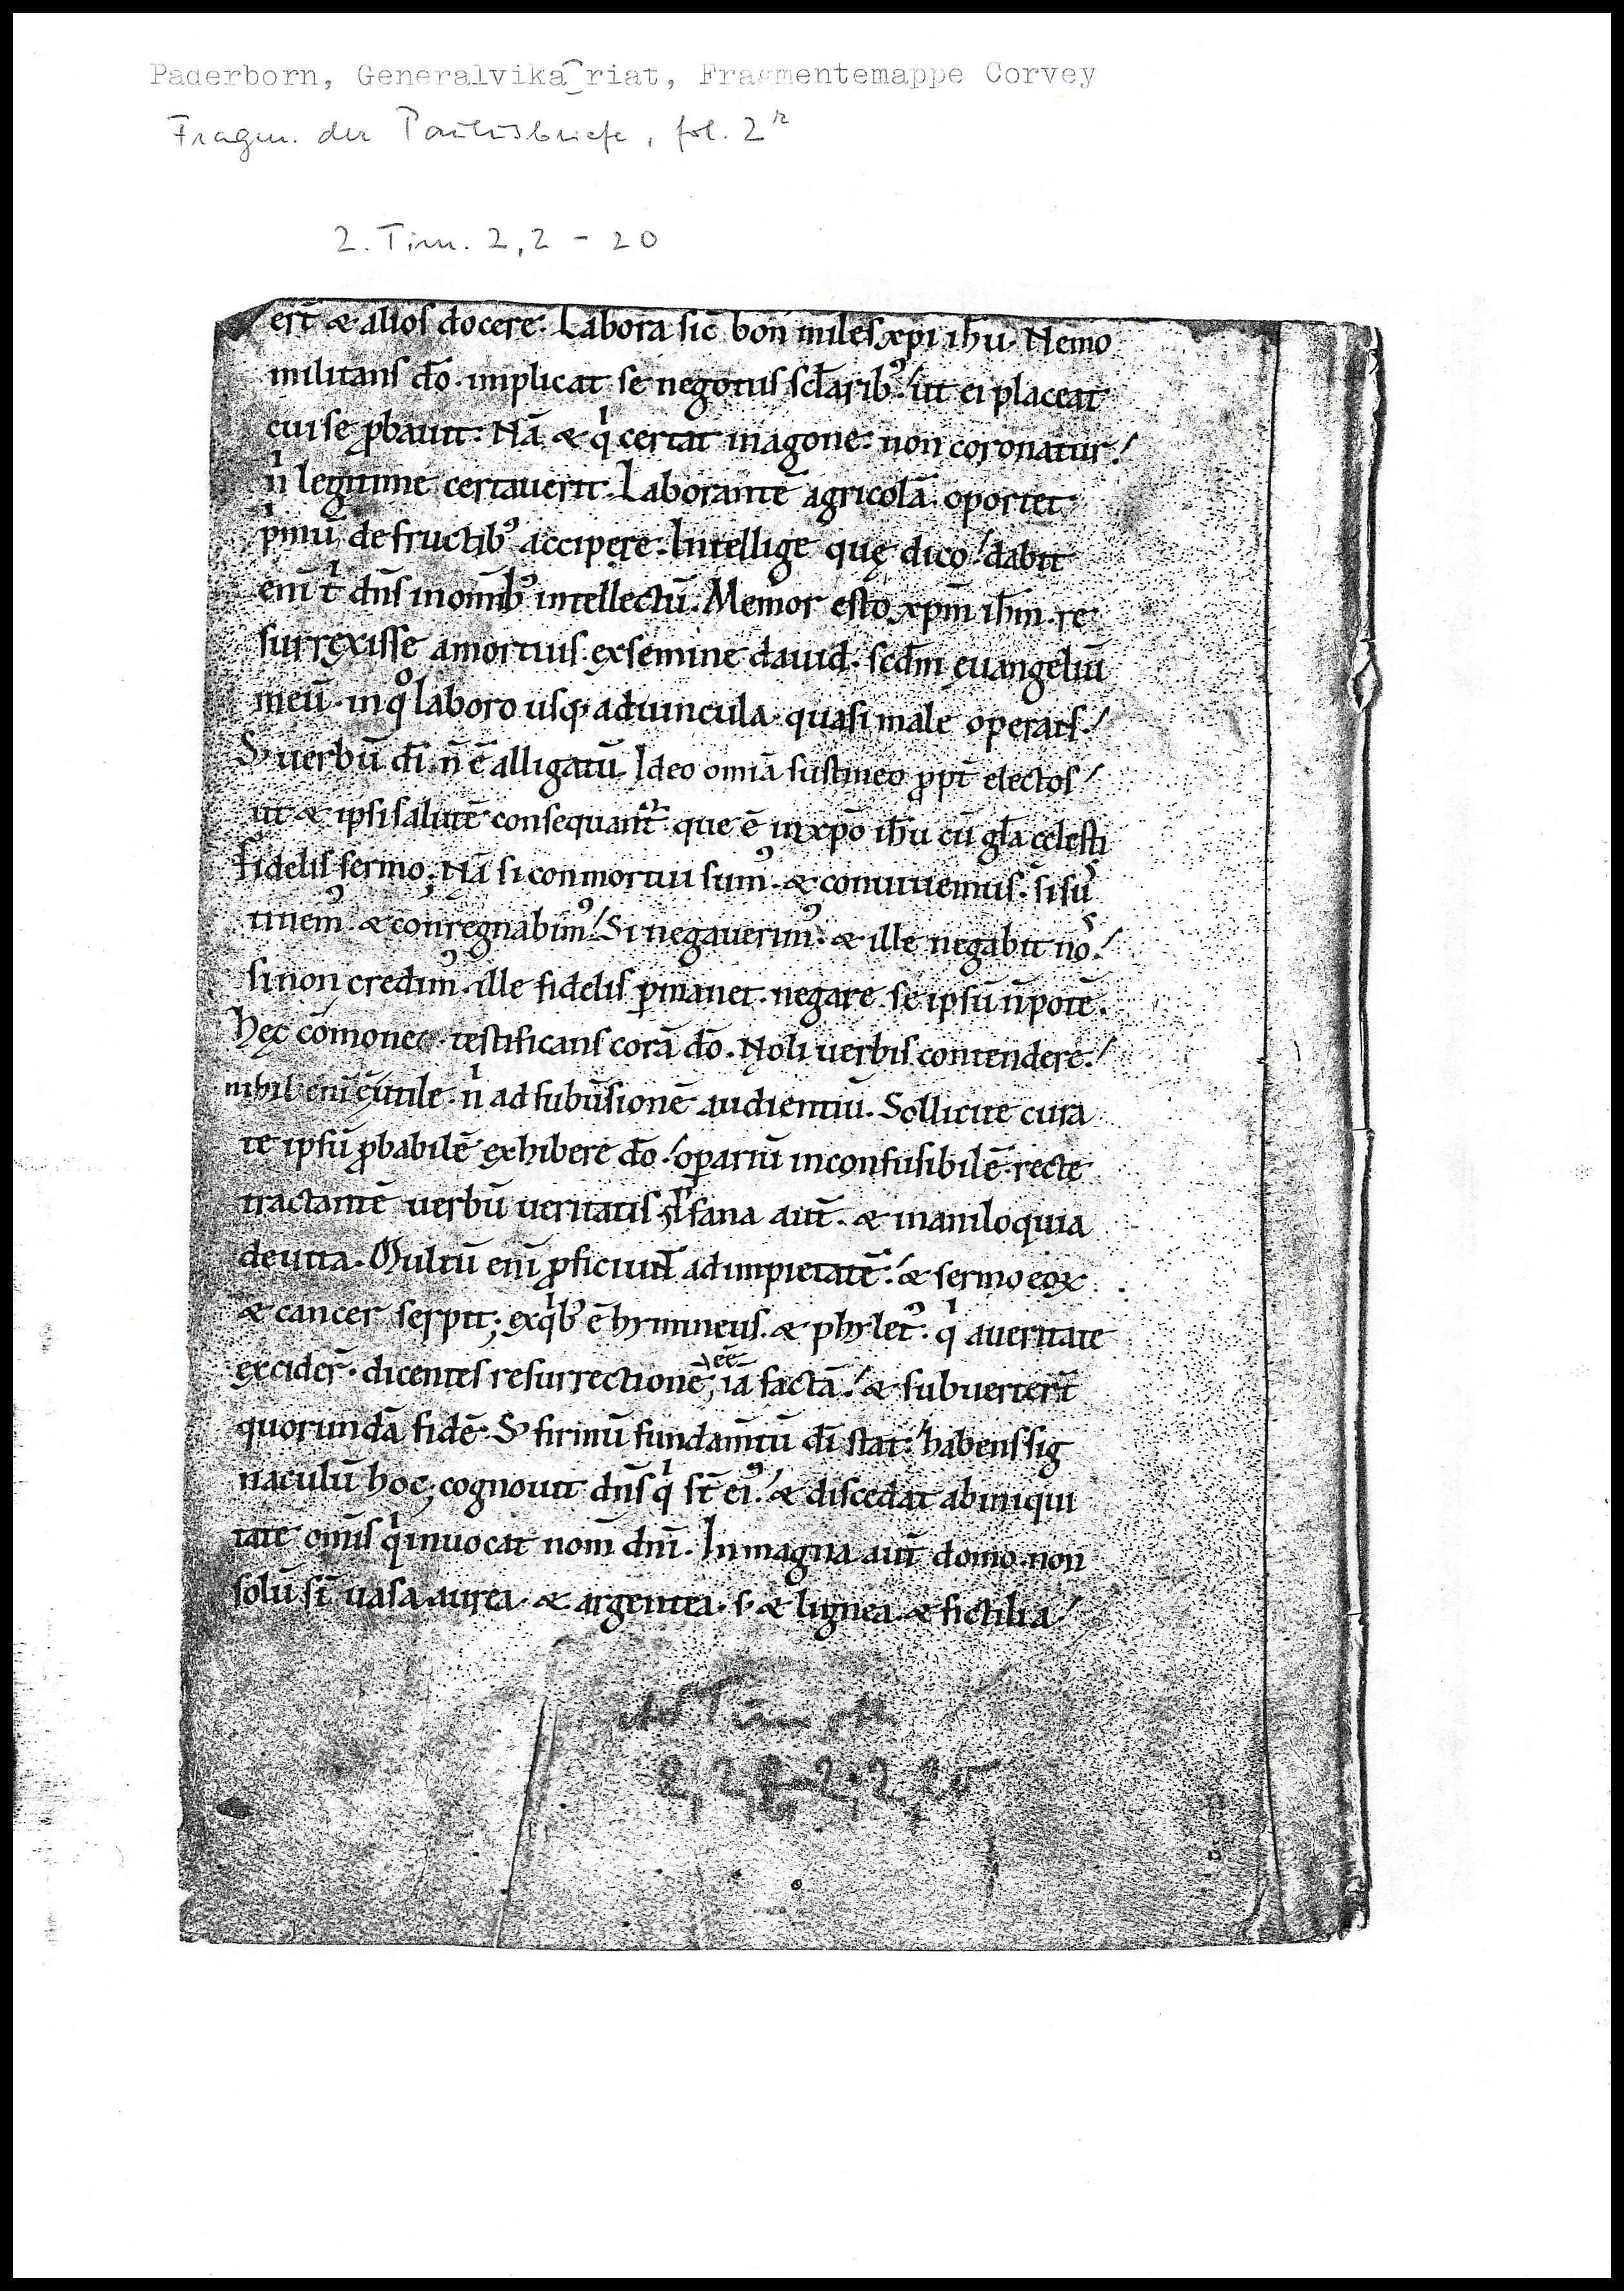 Paderborn, Generalvikariat, Fragmentemappe Corvey
Fragm. der Paulusbriefe, fol. 2r
2. Tim. 2,2 - 20
erit̄ & alios docere. Labora sic̄ bon miles xpi ihu. Nemo
militans dō. implicat se negotiis sclarib᾿. ut ei placeat
cui se ꝓbauit. Nā & qͥ certat in agone. non coronatur.
nͥ legitime certauerit. Laborantē agricolā oportet
pͥmū de fructib᾿ accipere. Intellige quę dico. dabit
enī tͥ dn̄s in om̄ib᾿ intellectū. Memor esto xp̄m ihm̄. re
surrexisse a mortuis. ex semine dauid. scdm̄ euangeliū
meū. in qͦ laboro usq; ad uincula. quasi male operans.
S; uerbū dī. n̄ ē alligatū. Ideo omīa sustineo ꝓpt̄ electos
ut & ipsi salutē consequant̄. que ē in xp̄o ih̄u cū gl̄a celesti
Fidelis sermo; Nā si conmortui sum᾿. & conuiuemus. si sus
tinem᾿. & conregnabim᾿. Si negauerim᾿. & ille negabit nos.
si non credim᾿. ille fidelis ꝑmanet. negare se ipsū n̄ potē.
Hęc cōmone testificans corā dō. Noli uerbis contendere.
nihil enī ē utile. nͥ ad subūsionē audientiū. Sollicite cura
te ipsū ꝓbabilē exhibere dō. oꝑariū inconfusibilē. recte
tractantē uerbū ueritatis. ꝓfana aut̄. & inaniloquia
deuita. Multū enī ꝓficiunt ad impietatē. & sermo eoꝝ
& cancer serpit; ex qͥb᾿ ē hymineus. & phylet᾿. qͥ a ueritate
excider̄. dicentes resurrectionē, eē iā factā. & subuerter̄t
quorundā fidē. S; firmū fundam̄tū dī stat. habens sig
naculū hoc; cognouit dn̄s qͥ st̄ ei᾿. & discedat ab iniqui
tate om̄is qͥ inuocat nom̄ dn̄i. In magna aut̄ domo. non
solū st̄ uasa aurea. & argentea. s. & lignea. & fictilia